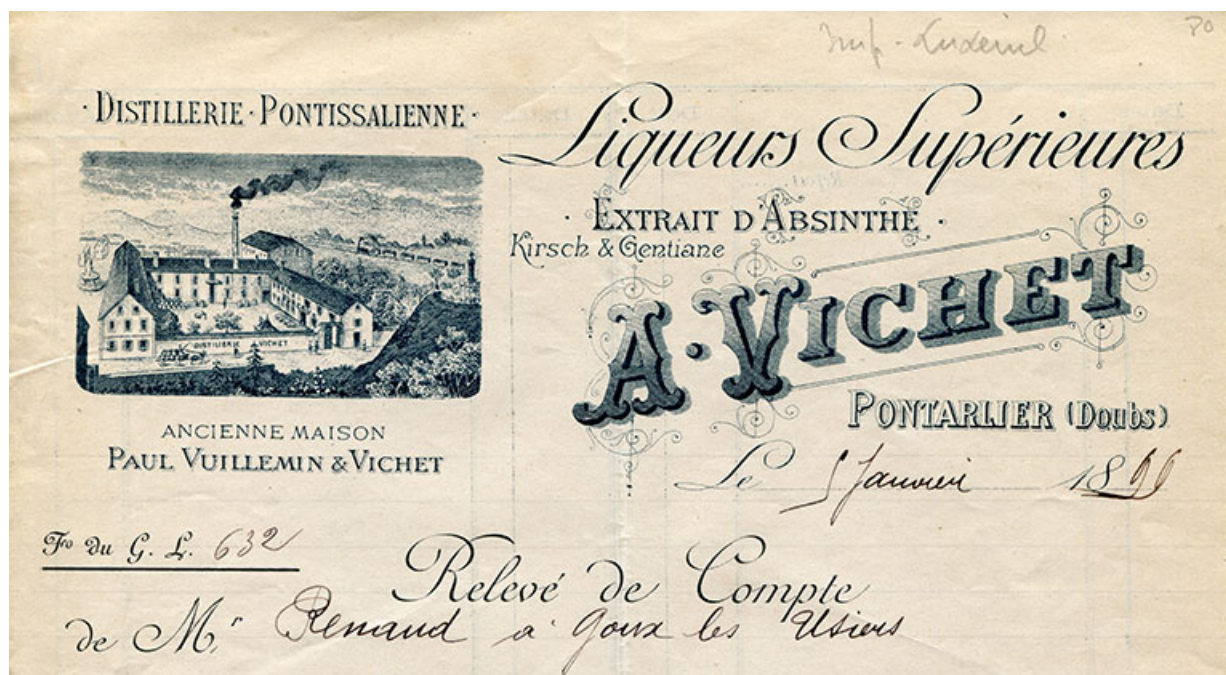 80
· DISTILLERIE · PONTISSALIENNE ·
DISTILLERIE VICHET
ANCIENNE MAISON
PAUL VUILLEMIN & VICHET
Liqueurs Supérieures
· EXTRAIT D'ABSINTHE ·
Kirsch & Gentiane
A · VICHET
PONTARLIER (Doubs)
Le 5 Janvier 18
Fo du G. L. 632
Relevé de Compte
de Mr Renaud à Goux les Usiers